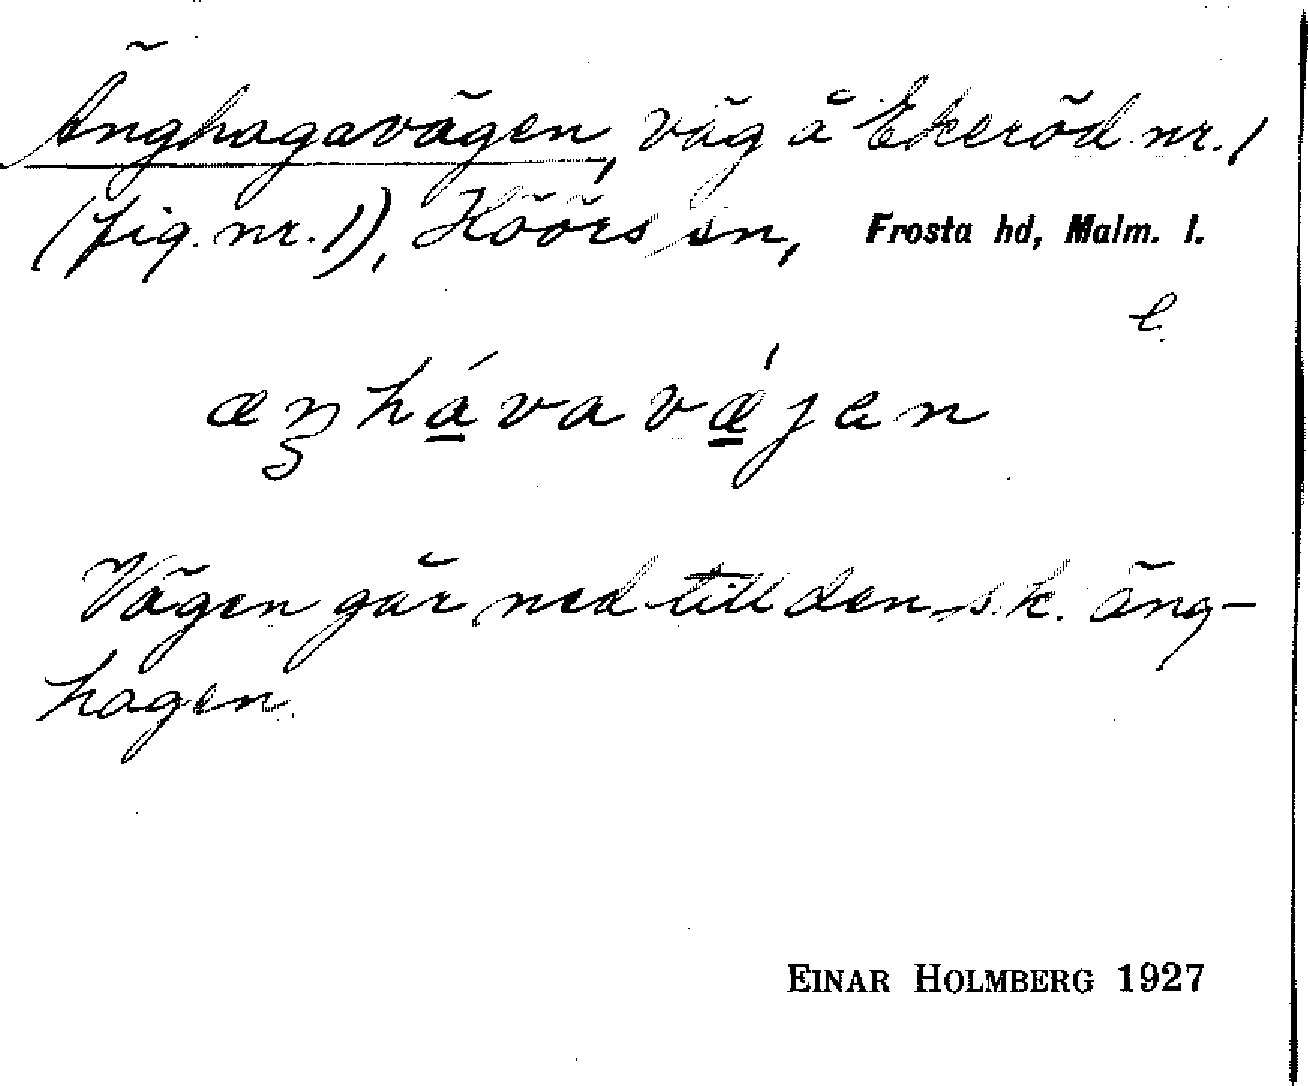 Änghagavägen, väg å Ekeröd nr. 1
(fig. nr. 1), Höörs sn, Frosta hd, Malm. l.
e.
æŋháva vǽ̱jen
Vägen går ned till den s.k. äng-
hagen.
EINAR HOLMBERG 1927